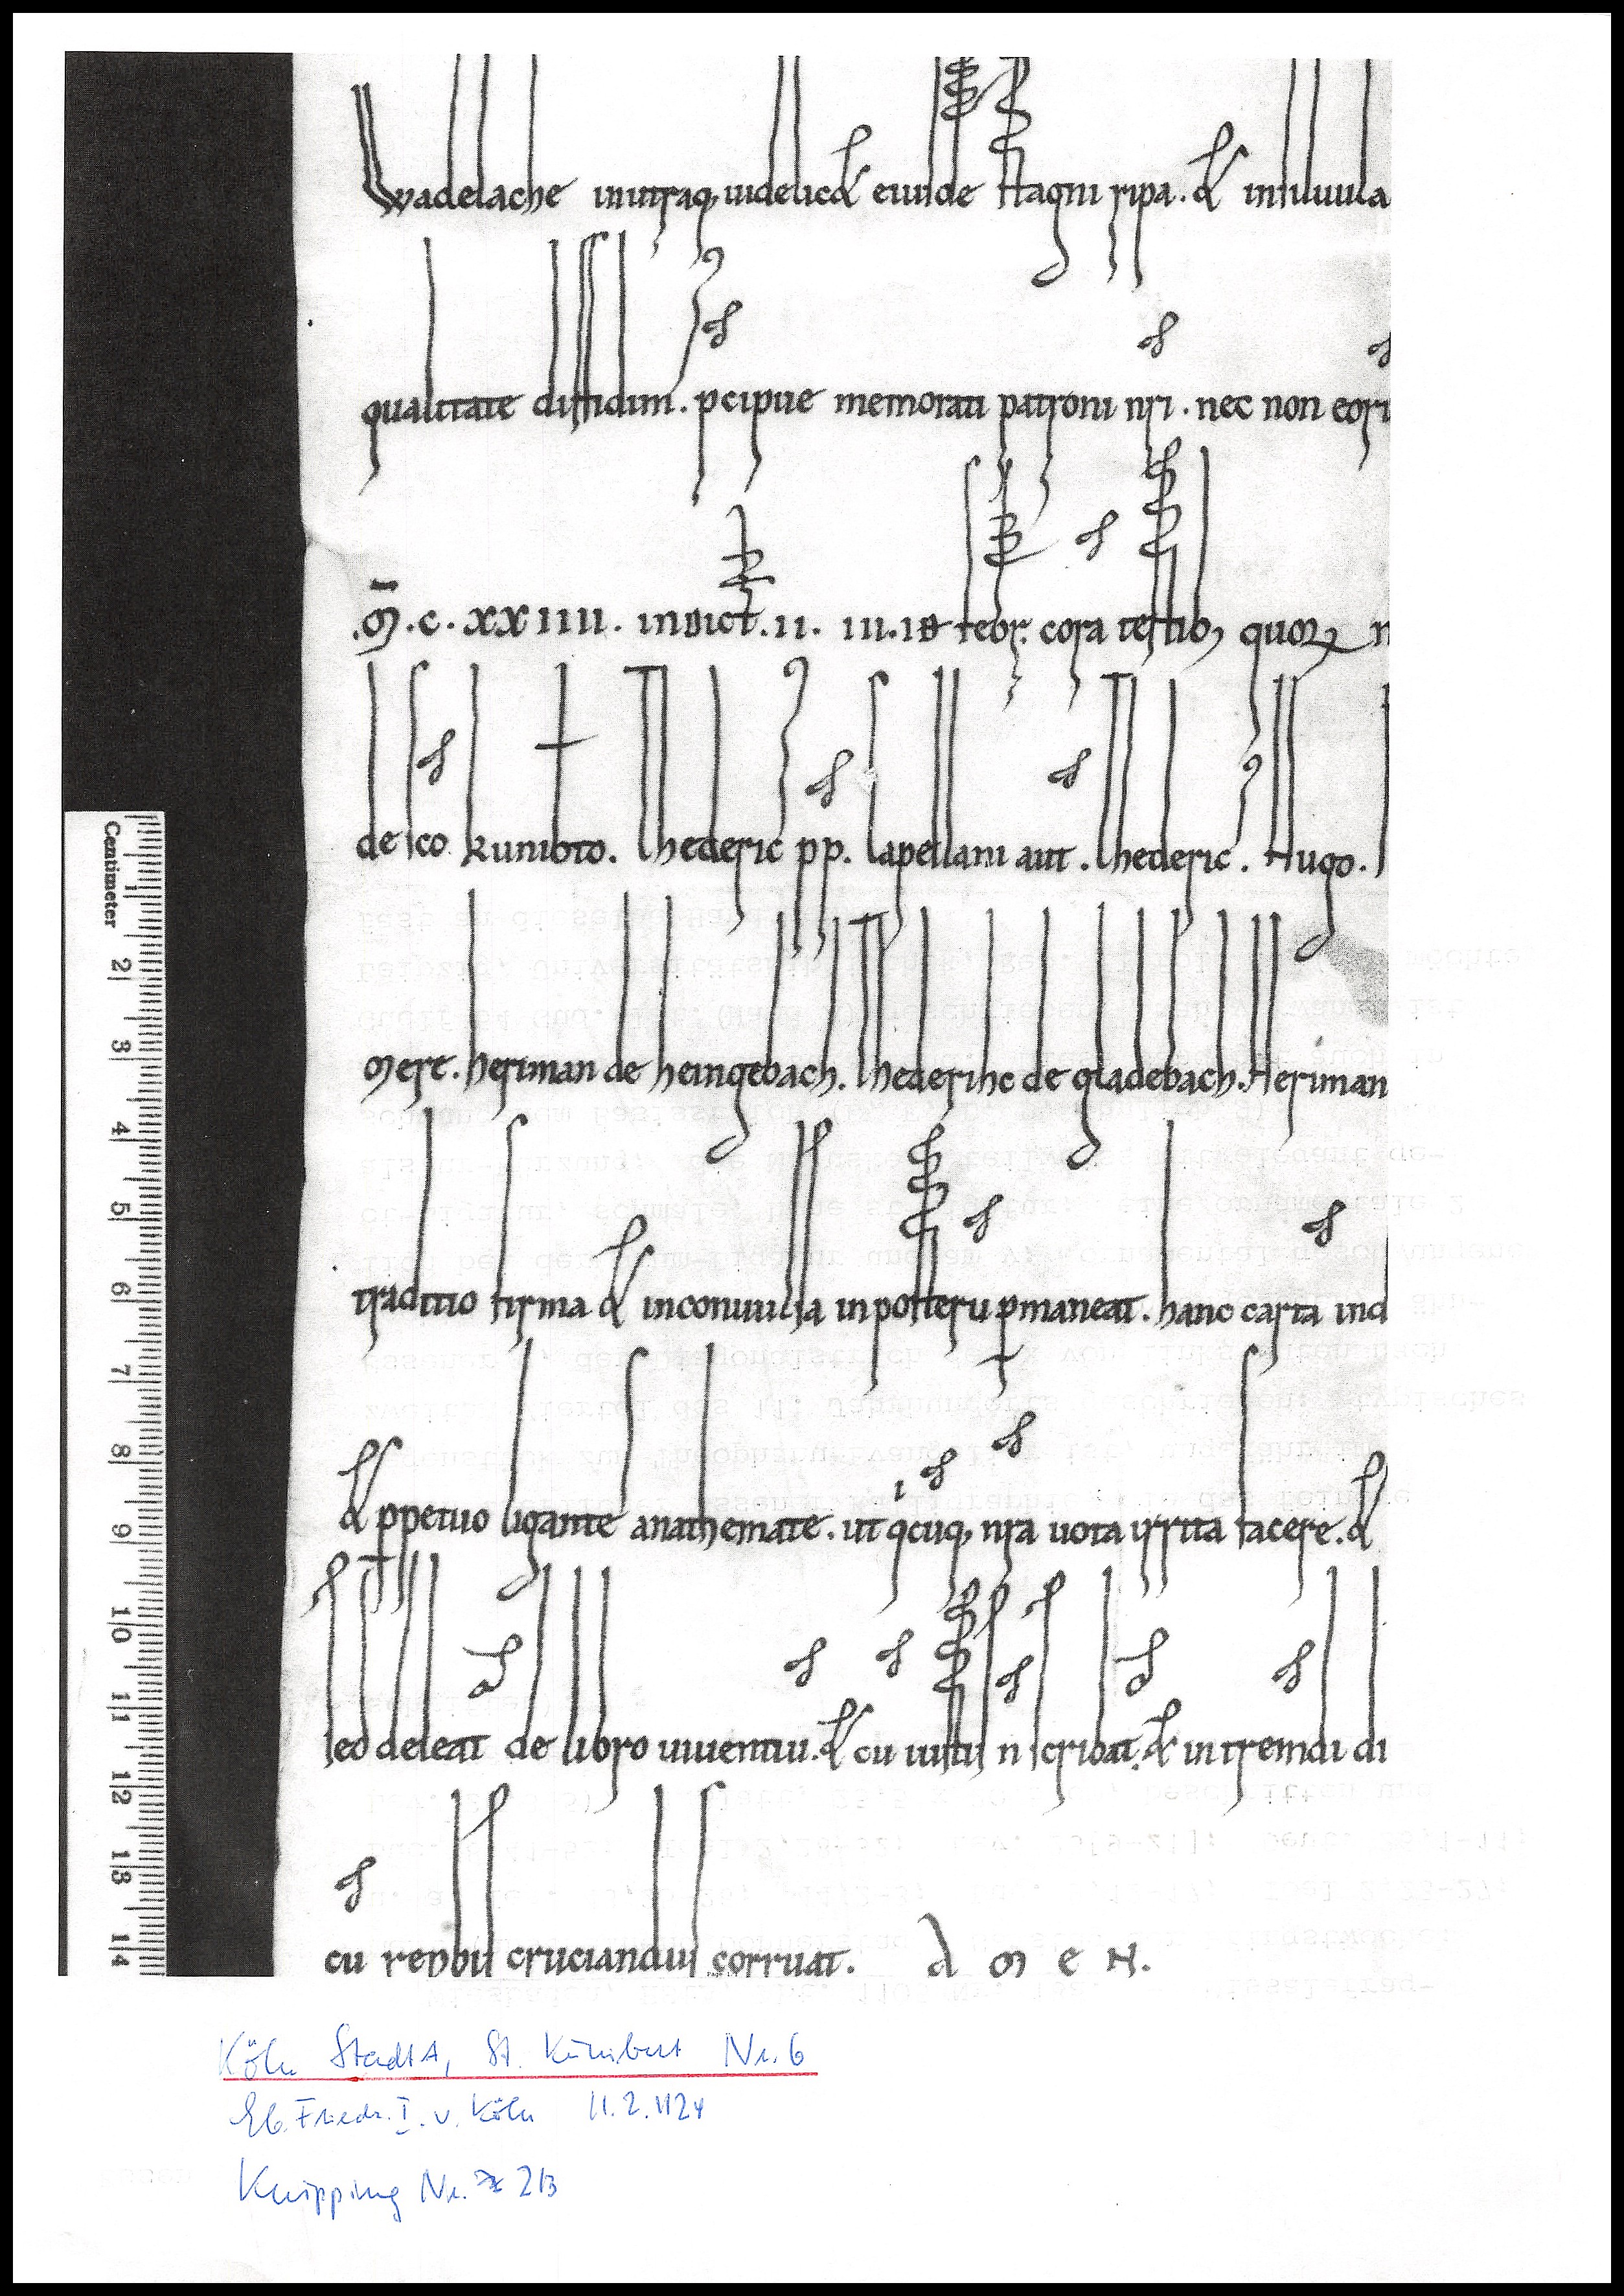 Wadelache inutraq; uidelicet eiusde Hagni ripa. et insiluula
qualitate diffidim. pcipue memorati patroni nri. nec non eor
.M̄.c.xxiiii. indict. ii. iii. id febr. cora testib; quoꝝ n
de sco kunibto. Thederic pp. Capellani aut. Thederic. Hugo.
Mere. heriman de heingebach. Thederihc de gladebach. Heriman
traditio firma et inconuulsa in posteru pmaneat. hanc carta ind
et ppetuo ligante anathemate. ut qͥcuq; nra uota irrita facere. et
sed deleat de libro uiuentiu. et cu iustis n scribat. et in tremdi di
cu reprobis cruciandus corruat. A M E N.
Centimeter
1 2 3 4 5 6 7 8 9 10 11 12 13 14
Köln StadtA, St. Kunibert Nr. 6
Eb. Friedr. I. v. Köln 11.2.1124
Knipping Nr. 213